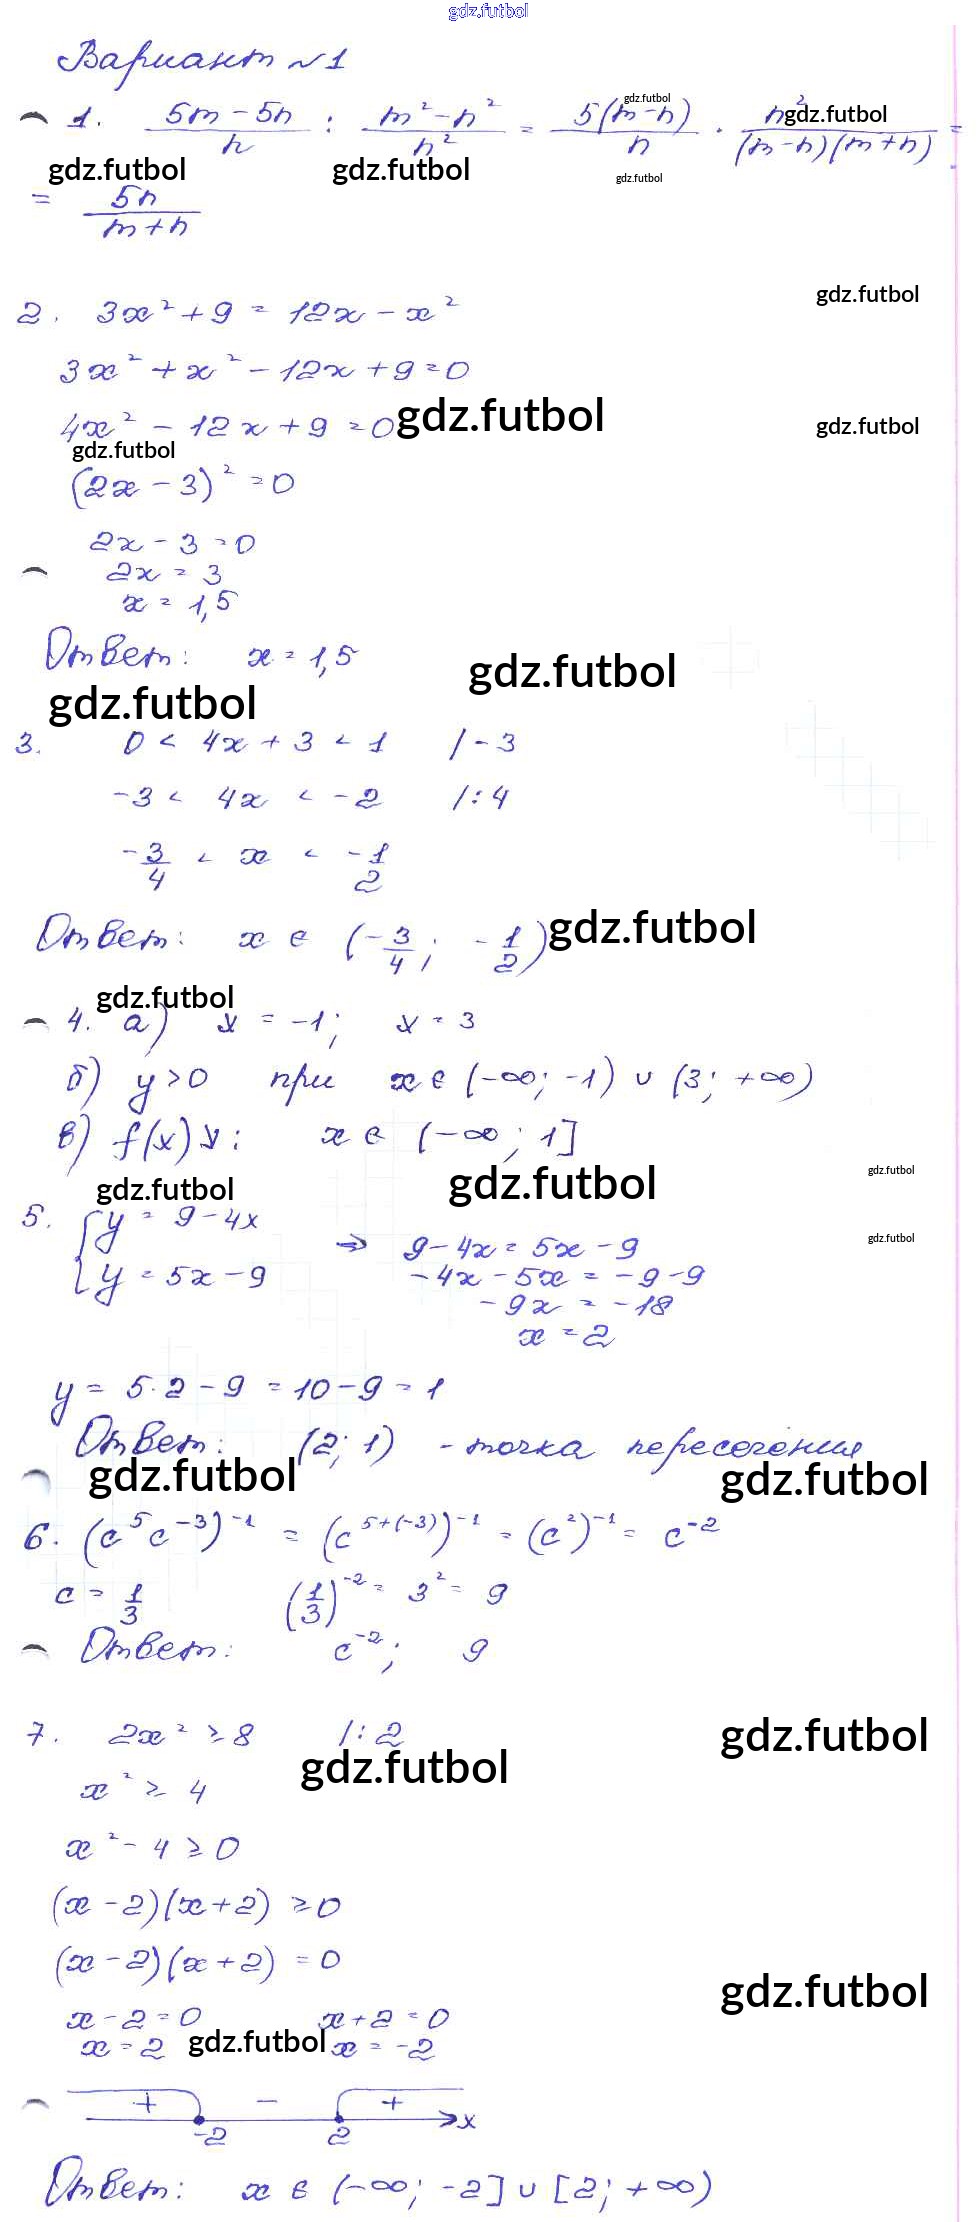 gdz.futbol
Вариант №1
1. (5m - 5n)/n : (m² - n²)/n² = 5(m-n)/n · n²/((m-n)(m+n)) =
gdz.futbol
gdz.futbol
gdz.futbol gdz.futbol gdz.futbol
= 5n/(m+n)
gdz.futbol
2. 3x² + 9 = 12x - x²
3x² + x² - 12x + 9 = 0
4x² - 12x + 9 = 0
gdz.futbol gdz.futbol
gdz.futbol
(2x - 3)² = 0
2x - 3 = 0
2x = 3
x = 1,5
Ответ: x = 1,5
gdz.futbol
gdz.futbol
3. 0 < 4x + 3 < 1 /-3
-3 < 4x < -2 /:4
-3/4 < x < -1/2
Ответ: x ∈ (-3/4; -1/2)
gdz.futbol
gdz.futbol
4. а) x = -1; x = 3
б) y > 0 при x ∈ (-∞; -1) ∪ (3; +∞)
в) f(x)↘: x ∈ (-∞; 1]
gdz.futbol gdz.futbol gdz.futbol
5. { y = 9 - 4x
{ y = 5x - 9
⇒ 9 - 4x = 5x - 9
gdz.futbol
-4x - 5x = -9 - 9
-9x = -18
x = 2
y = 5·2 - 9 = 10 - 9 = 1
Ответ: (2; 1) - точка пересечения
gdz.futbol gdz.futbol
6. (c⁵c⁻³)⁻¹ = (c⁵⁺⁽⁻³⁾)⁻¹ = (c²)⁻¹ = c⁻²
c = 1/3 (1/3)⁻² = 3² = 9
Ответ: c⁻²; 9
7. 2x² ≥ 8 /:2
gdz.futbol gdz.futbol
x² ≥ 4
x² - 4 ≥ 0
(x - 2)(x + 2) ≥ 0
(x - 2)(x + 2) = 0
gdz.futbol
x - 2 = 0 x + 2 = 0
x = 2 gdz.futbol x = -2
+ - +
-2 2 x
Ответ: x ∈ (-∞; -2] ∪ [2; +∞)